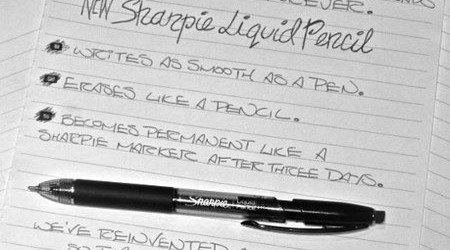 EVER.
NEW Sharpie Liquid Pencil
WRITES AS SMOOTH AS A PEN.
ERASES LIKE A PENCIL.
BECOMES PERMANENT LIKE A
SHARPIE MARKER AFTER THREE DAYS.
Sharpie Liquid Pencil
WE'VE REINVENTED